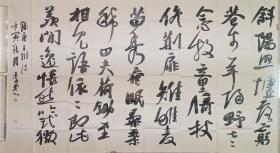 斜陽照墟落窮
巷牛羊歸野老
念牧童倚杖
候荊扉雉雊麥
苗秀蠶眠桑葉
稀田夫荷鋤至
相見語依依即此
羨閒逸悵然吟式微